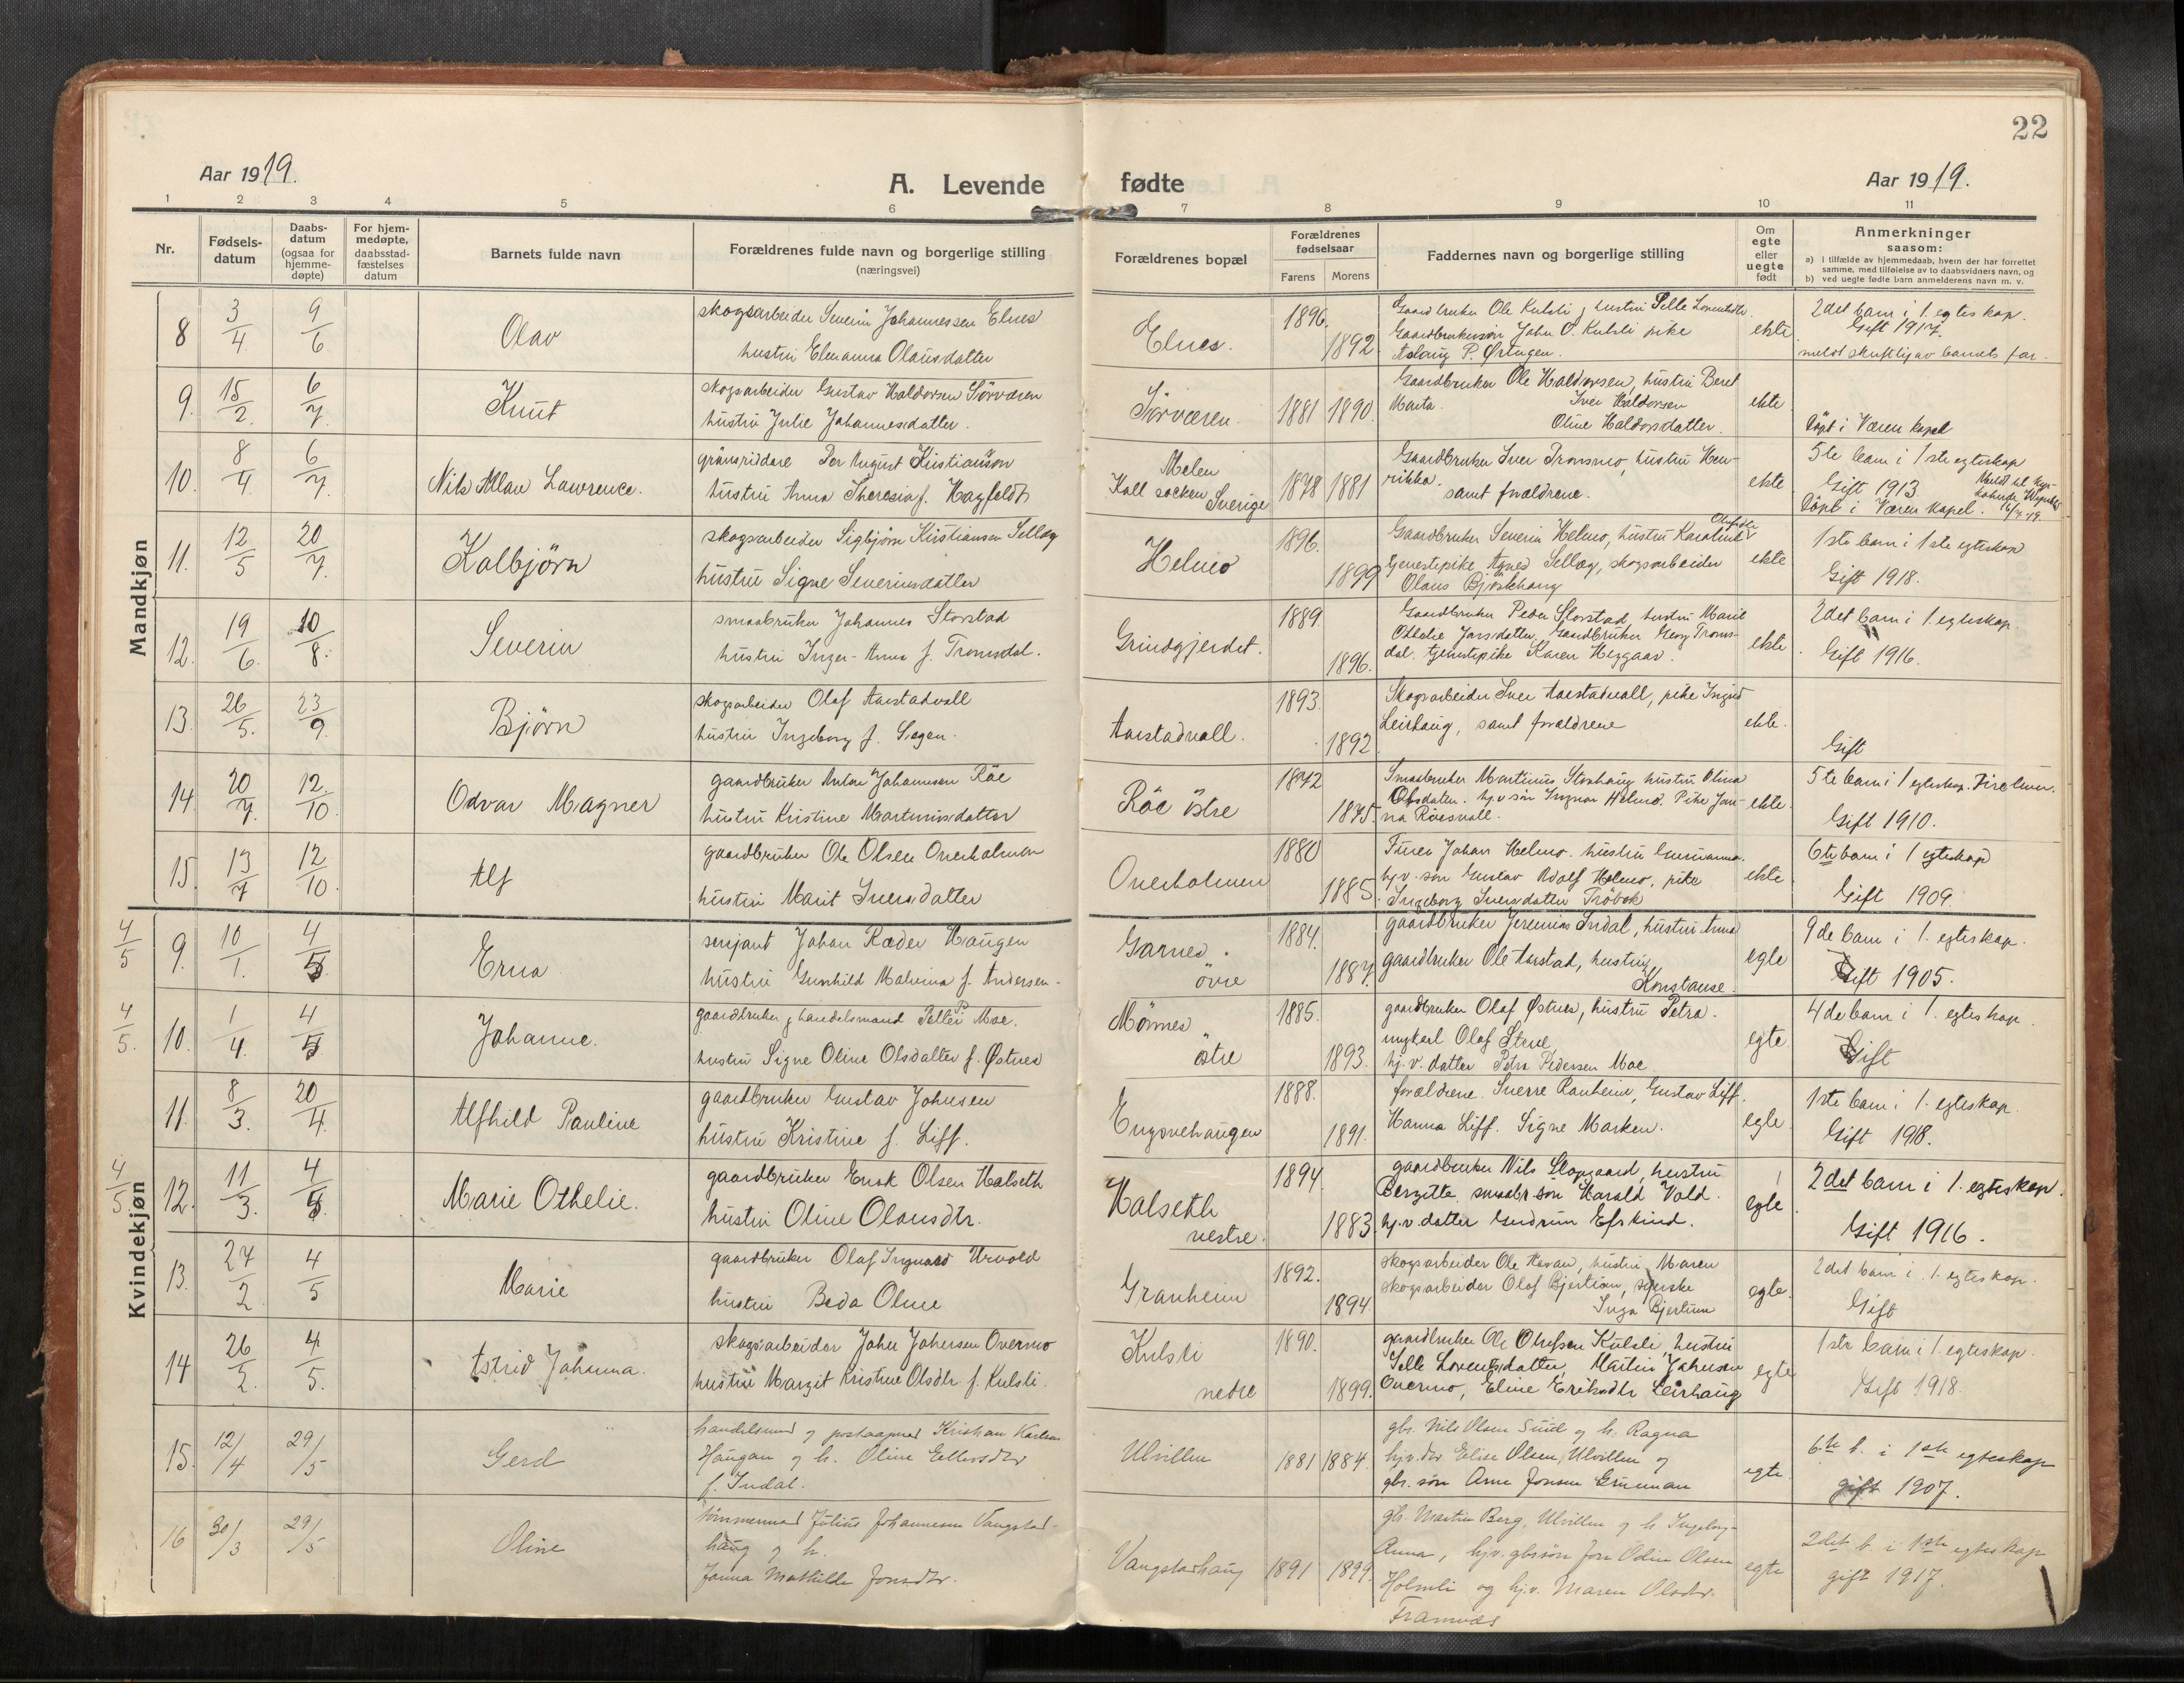 22
Aar 1919.
A. Levende fødte
Aar 1919.
1 2 3 4 5 6 7 8 9 10 11
Nr.
Fødsels-
datum
Daabs-
datum
(ogsaa for
hjemme-
døpte)
For hjem-
medøpte,
daabsstad-
fæstelses
datum
Barnets fulde navn
Forældrenes fulde navn og borgerlige stilling
(næringsvei)
Forældrenes bopæl
Forældrenes
fødselsaar
Farens Morens
Faddernes navn og borgerlige stilling
Om
egte
eller
uegte
født
Anmerkninger
saasom:
a) i tilfælde av hjemmedaab, hvem der har forrettet
samme, med tilføielse av to daabsvidners navn, og
b) ved uegte fødte barn anmelderens navn m. v.
Mandkjøn
8 3/4 9/6 Olav
skogsarbeider Severin Johannessen Elnes
hustru Elenanna Olausdatter
Elnes. 1896. 1892
Gaardbruker Ole Kulsli, hustru Pelle
Gaardbrukersøn John O. Kulsli pike
Aslaug P. Østugen.
ekte
2det barn i 1. egteskap.
Gift 1917.
meldt skriftlig av barnets far.
9. 15/2. 6/7 Knut
skogsarbeider Gustav Haldorsen Sörværen
hustru Julie Johannesdatter.
Sörværen. 1881 1890.
Gaardbruker Ole Haldorsen, hustru Beret
Marta. Iver Haldorsen
Oline Haldorsdatter.
ekte
Döpt i Væren kapel
10. 8/4. 6/7. Nils Allan Lawrence.
gränsriddare Per August Kristiansson
hustru Anna Theresia f. Hagfeldt
Melen
Kall socken
Sverige
1878 1881
Gaardbruker Iver Tronsmo, hustru Hen-
rikka.
samt forældrene.
ekte
5te barn i 1ste egteskap
Gift 1913
Döpt i Væren kapel.
11. 12/5 20/7. Kolbjörn
skogsarbeider Sigbjörn Kristiansen Selläg
hustru Signe Severinsdatter
Helmo 1896. 1899
Gaardbruker Severin Helmo, hustru Karoline
tjenestepike Agnes Selläg, skogsarbeider
Olaus
ekte
1ste barn i 1ste egteskap
Gift 1918.
12. 19/6. 10/8. Severin
smaabruker Johannes Storstad
hustru Inger-Anna f. Tromsdal.
Grindgjerdet. 1889. 1896.
Gaardbruker Peder Storstad, hustru Marie
Othelie Jonsdatter, Gaardbruker Georg Troms-
dal. tjenestepike Karen Heggaas.
ekte
2det barn i 1. egteskap.
Gift 1916.
13. 26/5. 23/9. Björn
skogsarbeider Olaf Aarstadvall
hustru Ingeborg f. Segen.
Aarstadvall. 1893. 1892
Skogsarbeider Iver Aarstadvall, pike Ingrid
Leirhaug, samt forældrene
ekte.
Gift
14 20/7. 12./10. Odvar Magner
gaardbruker Anton Johannsen Röe
hustru Kristine Martinusdatter
Röe östre 1872 1875.
Smaabruker Martinus Storhaug hustru Olina
Olsdatter. hjv søn Ingvar Helmo. Pike Jon-
na Röesvall.
ekte.
5te barn i 1 egteskap.
Gift 1910.
15. 13/7 12/10. Alf
gaardbruker Ole Olsen Overholmen
hustru Marit Iversdatter
Overholmen 1880 1885.
Johan Helmo. hustru Gurianna.
hjv. søn Gustav Adolf Helmo, pike
Ingeborg Iversdatter Tröbak
ekte
6te barn i 1 egteskap
Gift 1909.
Kvindekjøn
4/5 9. 10/1. 4/5 Erna
serjant Johan Ræder Haugen
hustru Gunhild Malvina f. Andersen.
Garnes
övre
1884. 1887.
gaardbruker Jeremias Indal, hustru Anna
gaardbruker Ole Aarstad, hustru
Konstanse.
egte
9de barn i 1. egteskap.
Gift 1905.
4/5. 10. 1/4. 4/5 Johanne.
gaardbruker & handelsmand Petter P. Moe.
hustru Signe Oline Olsdatter f. Østnes
Mönnes
östre
1885. 1893.
gaardbruker Olaf Østnes, hustru Petra.
ungkarl Olaf Strue
hj. v. datter Petra Pedersen Moe.
egte.
4de barn i 1. egteskap.
Gift
11. 8/3. 20/4. Alfhild Pauline
gaardbruker Gustav Johnsen
hustru Kristine f. Liff.
Engsvehaugen 1888. 1891.
forældrene. Sverre Ranheim, Gustav Liff.
Hanna Liff. Signe Marken.
egte
1ste barn i 1. egteskap.
Gift 1918.
4/5 12. 11/3. 4/5. Marie Othelie.
gaardbruker Enok Olsen Halseth
hustru Oline Olausdtr.
Halseth
vestre.
1894. 1883.
gaardbruker Nils Skogaard, hustru
Bergitte, smaabr søn Harald Vold.
hj.v. datter Gudrun Efskind.
egte
2det barn i 1. egteskap.
Gift 1916.
13. 27/2. 4/5 Marie
gaardbruker Olaf Ingvard Urvold
hustru Beda Oline
Granheim 1892. 1894.
skogsarbeider Ole Hevan, hustru Maren
skogsarbeider Olaf Bjertium,
Inga Bjertum
egte.
2det barn i 1. egteskap.
Gift
14 26/2. 4/5. Astrid Johanna.
skogsarbeider John Johnsen Overmo
hustru Margit Kristine Olsdtr f. Kulsli.
Kulsli
nedre
1890. 1899.
gaardbruker Ole Olufsen Kulsli hustru
Selle Lorentsdatter, Martin Johnsen
Overmo, Eline Eriksdtr Leirhaug
egte
1ste barn i 1. egteskap.
Gift 1918.
15. 12/4 29/5 Gerd
handelsmand og postaapner Kristian Karlsen
Haugan og h. Oline Ellevsdtr
f. Indal.
Ulvillen 1881 1884.
gbr. Nils Olsen Sund og h. Ragna
hjv. dtr Elise Olsen, Ulvillen og
gbr. søn Arne Jonsen Grunnan
egte
6te b. i 1ste egteskap
gift 1907.
16 30/3 29/5 Oline
tömmermand Julius Johannesen Vangstad-
haug og h.
Janna Mathilde Jonsdtr.
Vangstadhaug 1891 1899.
gbr. Martin Berg, Ulvillen og h Ingeborg-
Anna, hjv. gbrsön Jon Odin Olsen
Holmli og hjv. Maren Olsdtr.
Framnæs
egte
2det b. i 1ste egteskap
gift 1917.